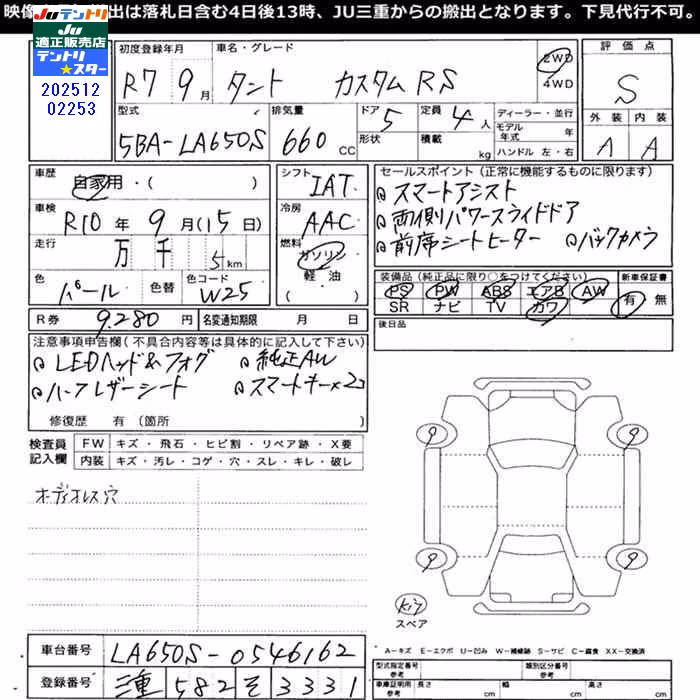 映像 出は落札日含む4日後13時、JU三重からの搬出となります。下見代行不可。
JUテントリ
適正販売店
テントリ★スター
202512
02253
初度登録年月 車名・グレード 評価点
R7 9月 タント カスタムRS 2WD 4WD S
型式 排気量 ドア 定員 ディーラー・並行 外装 内装
5BA-LA650S 660 CC 5 4人 モデル年式 年 A A
形状 積載 kg ハンドル 左・右
車歴 自家用・( ) シフト IAT セールスポイント(正常に機能するものに限ります)
車検 R10年 9月(15日) 冷房 AAC スマートアシスト
両側パワースライドドア
走行 万 千 5km 燃料 ガソリン 軽油 ( ) 前席シートヒーター バックカメラ
色 パール 色替 色コード W25 装備品(純正品に限り○をつけてください) 新車保証書
PS PW ABS エアB AW 有 無
SR ナビ TV カワ
R券 9.280円 名変通知期限 月 日 後日品
注意事項申告欄(不具合内容等は具体的に記入して下さい)
LEDヘッド&フォグ 純正AW
ハーフレザーシート スマートキー×2コ
修復歴 有(箇所 )
検査員記入欄 FW キズ・飛石・ヒビ割・リペア跡・X要
内装 キズ・汚レ・コゲ・穴・スレ・キレ・破レ
オーディオレス穴
9 9
9 9
キット
スペア
車台番号 LA650S-0546162
A-キズ E-エクボ U-凹み W-補修跡 S-サビ C-腐食 XX-交換済
登録番号 三重 582 そ 3331
型式指定番号 参考 類別区分番号 参考
車庫証明用 参考 長さ cm 幅 cm 高さ cm